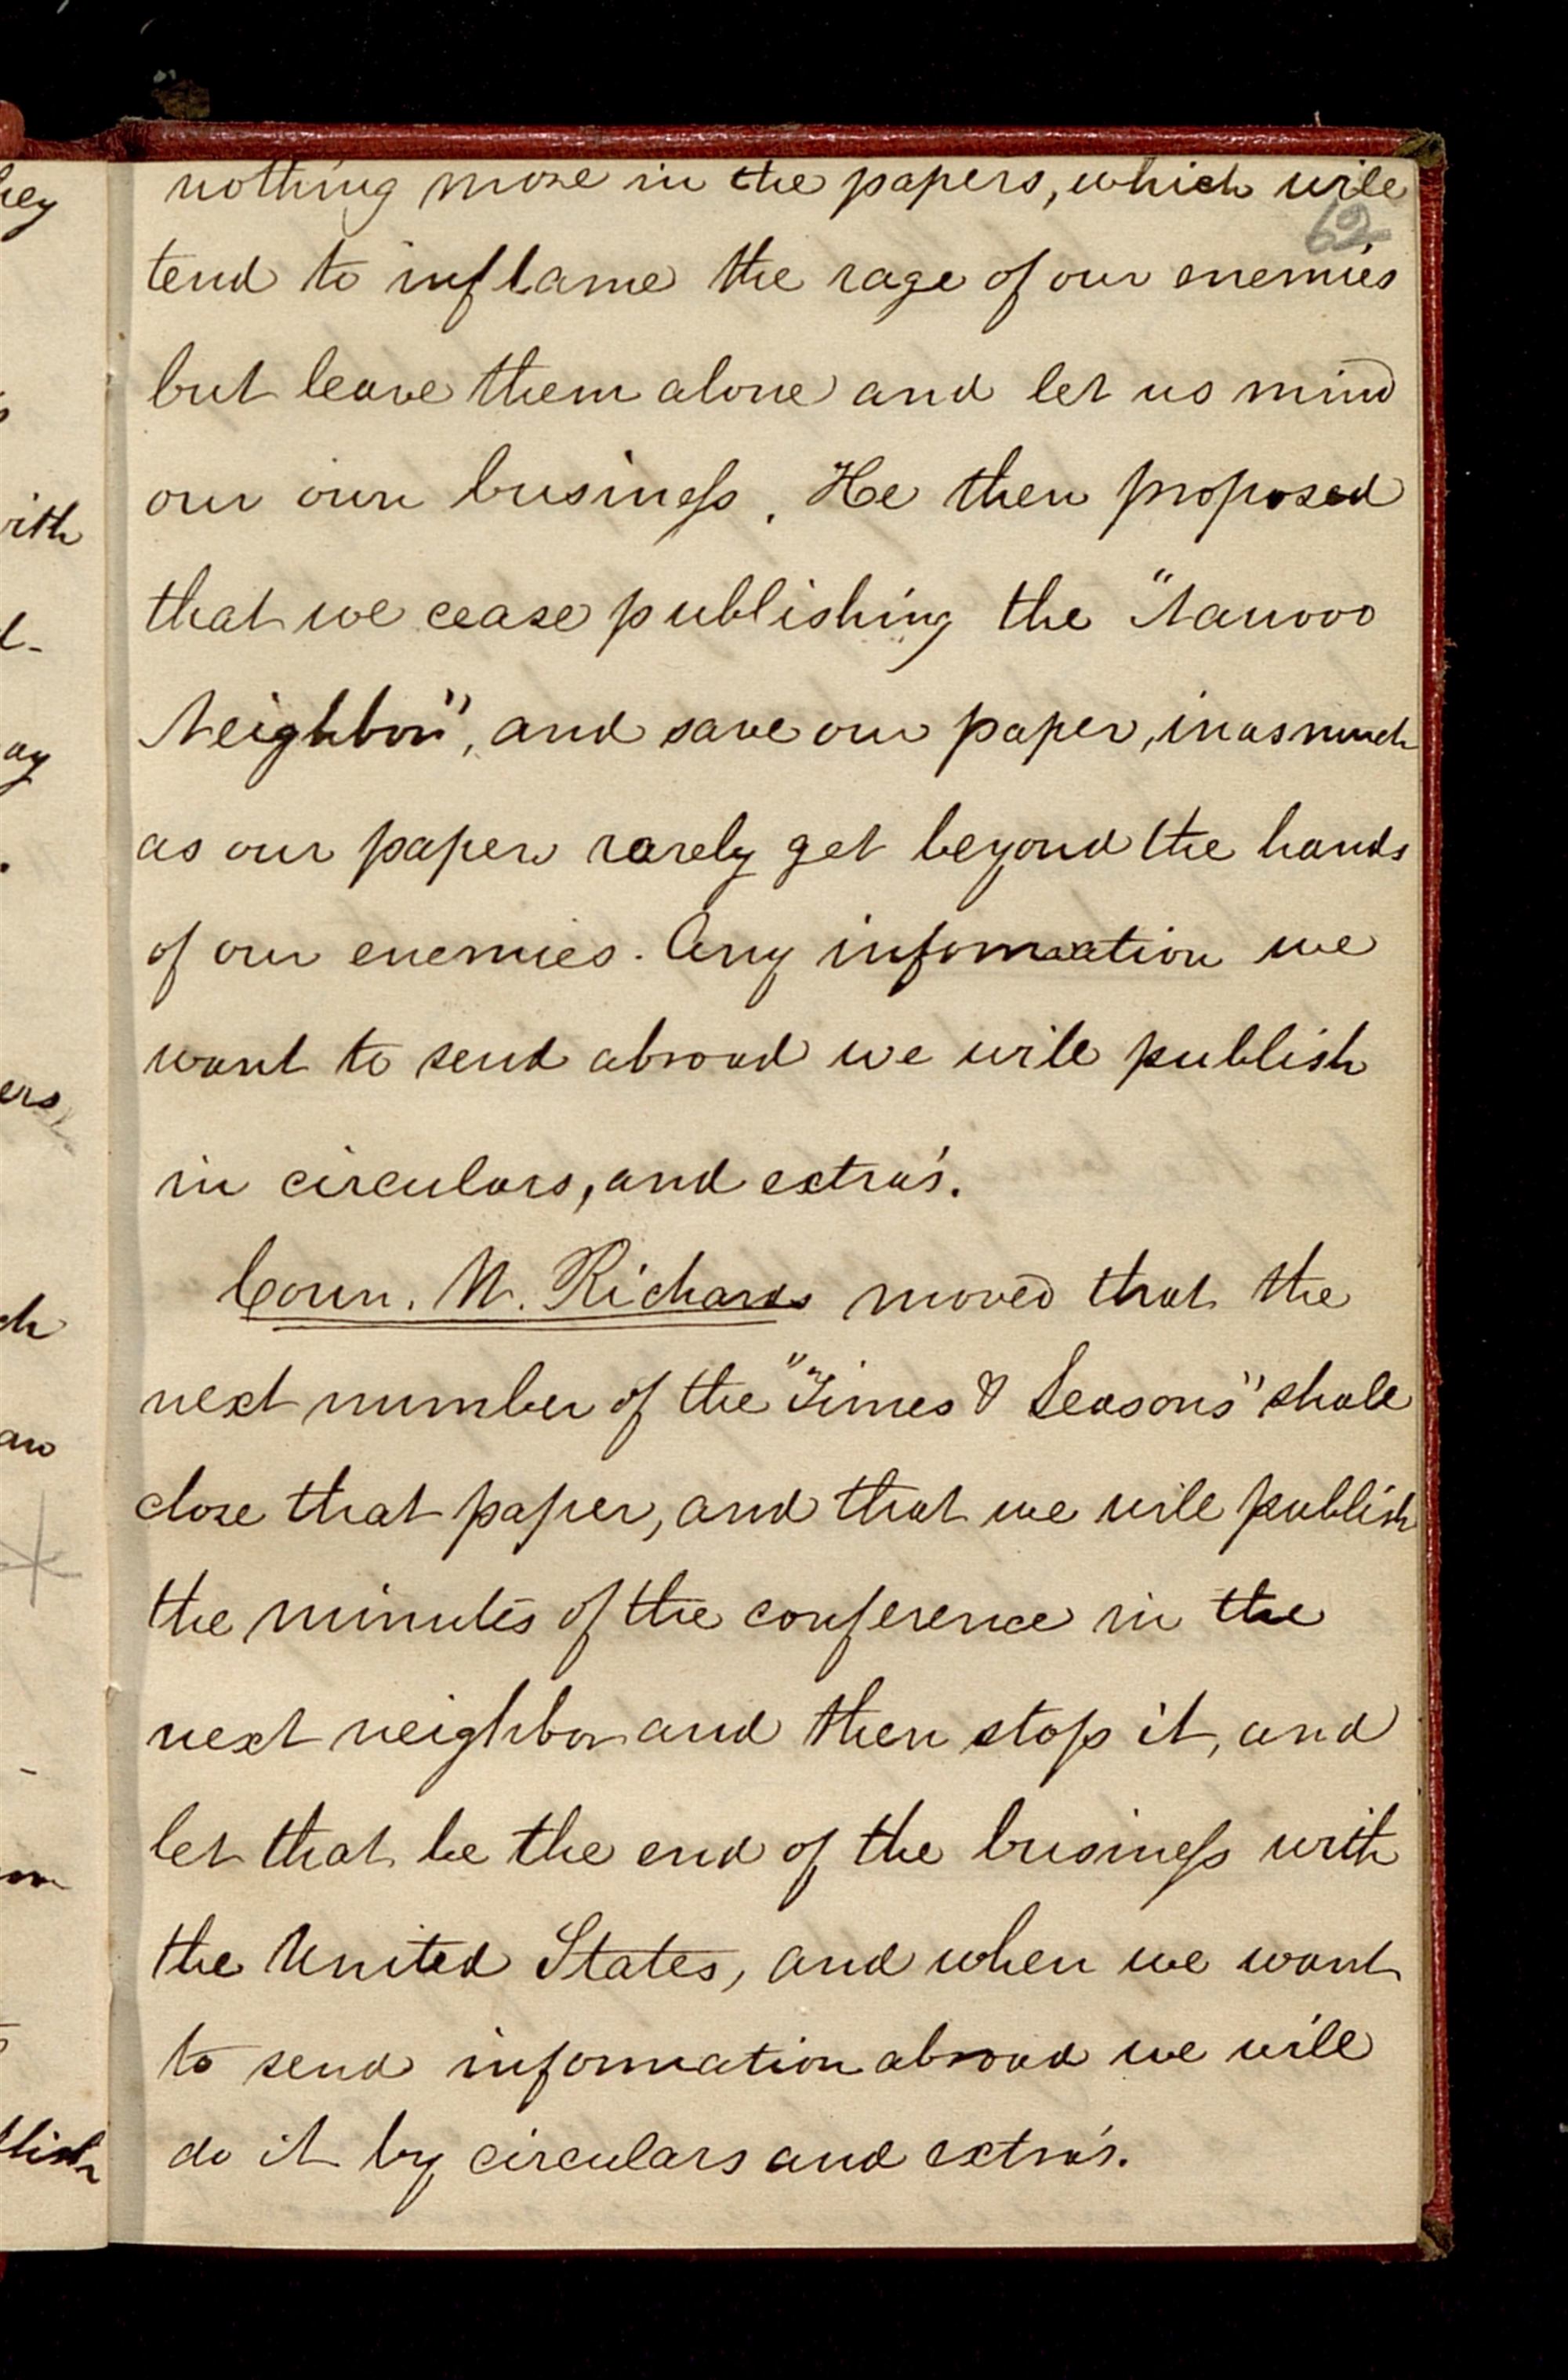 nothing more in the papers, which will
62
tend to inflame the rage of our enemies
but leave them alone and let us mind
our own business. He then proposed
that we cease publishing the "Nauvoo
Neighbor", and save our paper, inasmuch
as our papers rarely get beyond the hands
of our enemies. Any information we
want to send abroad we will publish
in circulars, and extra's.
Coun. W. Richards moved that the
next number of the "Times & Seasons" shall
close that paper, and that we will publish
the minutes of the conference in the
next neighbor and then stop it, and
let that be the end of the business with
the United States, and when we want
to send information abroad we will
do it by circulars and extra's.